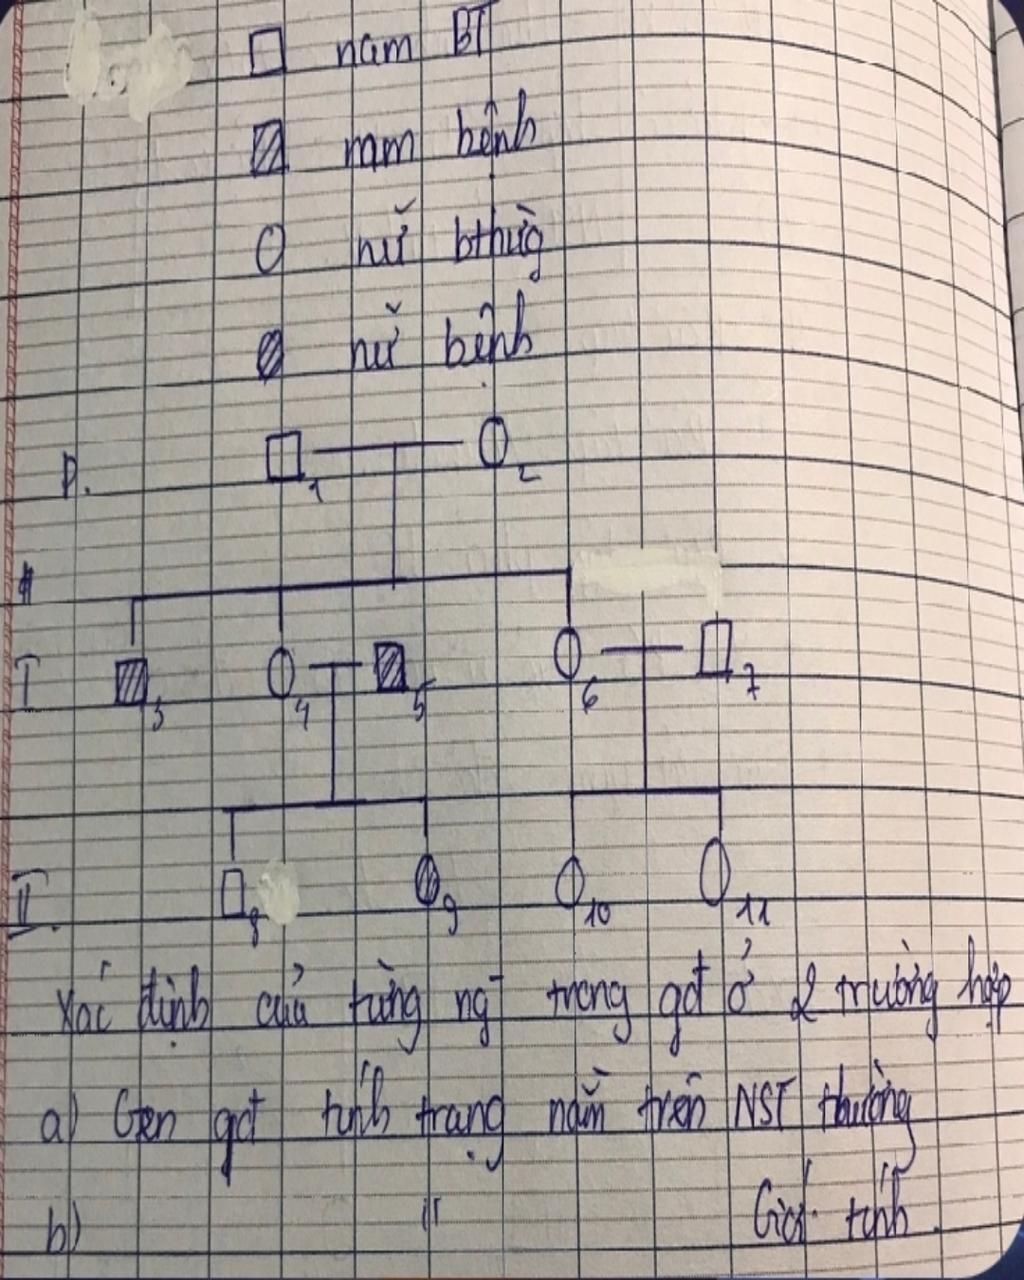 nam BT
nam bệnh
nữ bthườg
nữ bệnh
P. 1 2
I 3 4 5 6 7
II 8 9 10 11
Xác định của từng ng` trong gđ ở 2 trường hợp
a) Gen qđ tính trạng nằm trên NST thường
b) " Giới tính